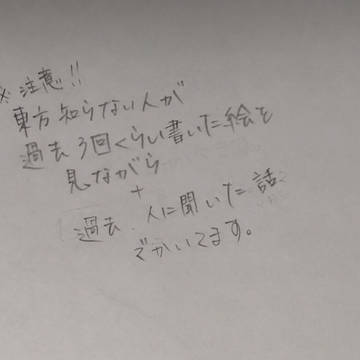 ※注意!!
東方知らない人が
過去3回くらい書いた絵を
見ながら
+
過去、人に聞いた話
でかいてます。